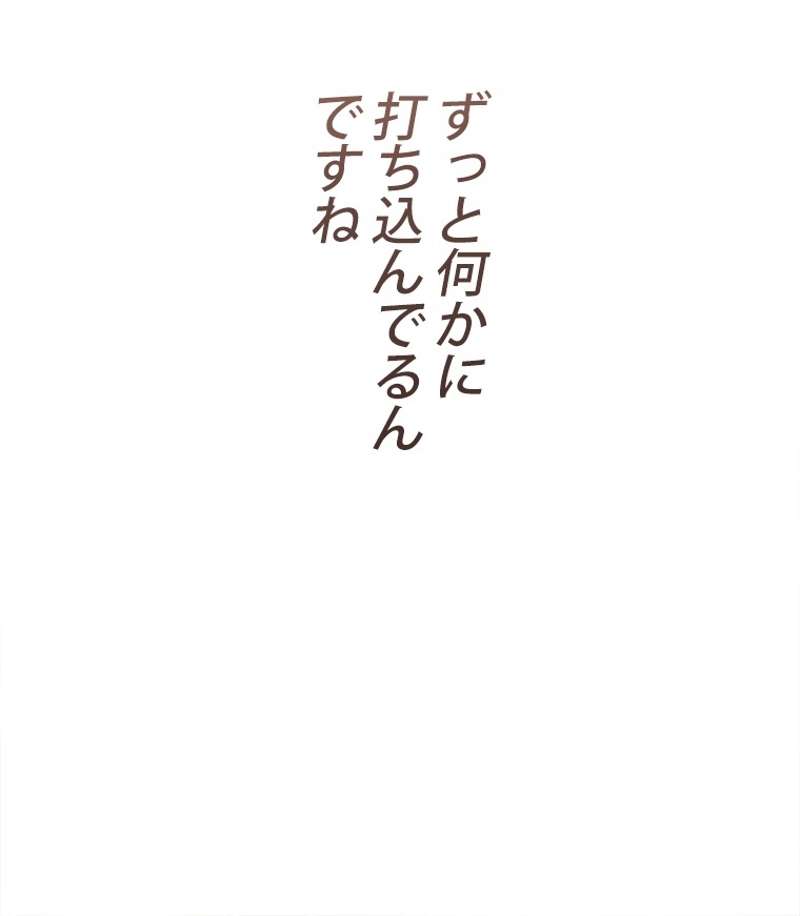 ずっと何かに
打ち込んでるん
ですね